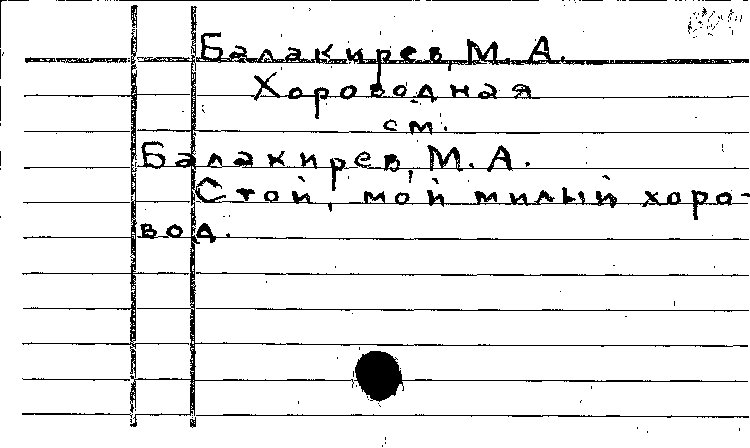 Балакирев, М. А.
Хороводная
см.
Балакирев, М. А.
Стой, мой милый хоро-
вод.